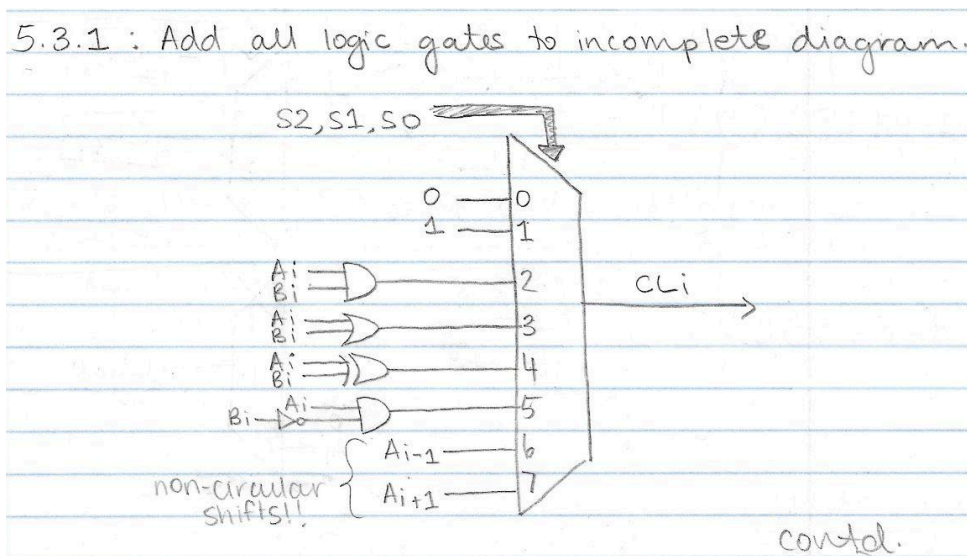 5.3.1 : Add all logic gates to incomplete diagram.
S2, S1, S0
0 0
1 1
Ai
Bi
2
CLi
Ai
Bi
3
Ai
Bi
4
Ai
Bi
5
Ai-1 6
non-circular
shifts!!
Ai+1 7
contd.